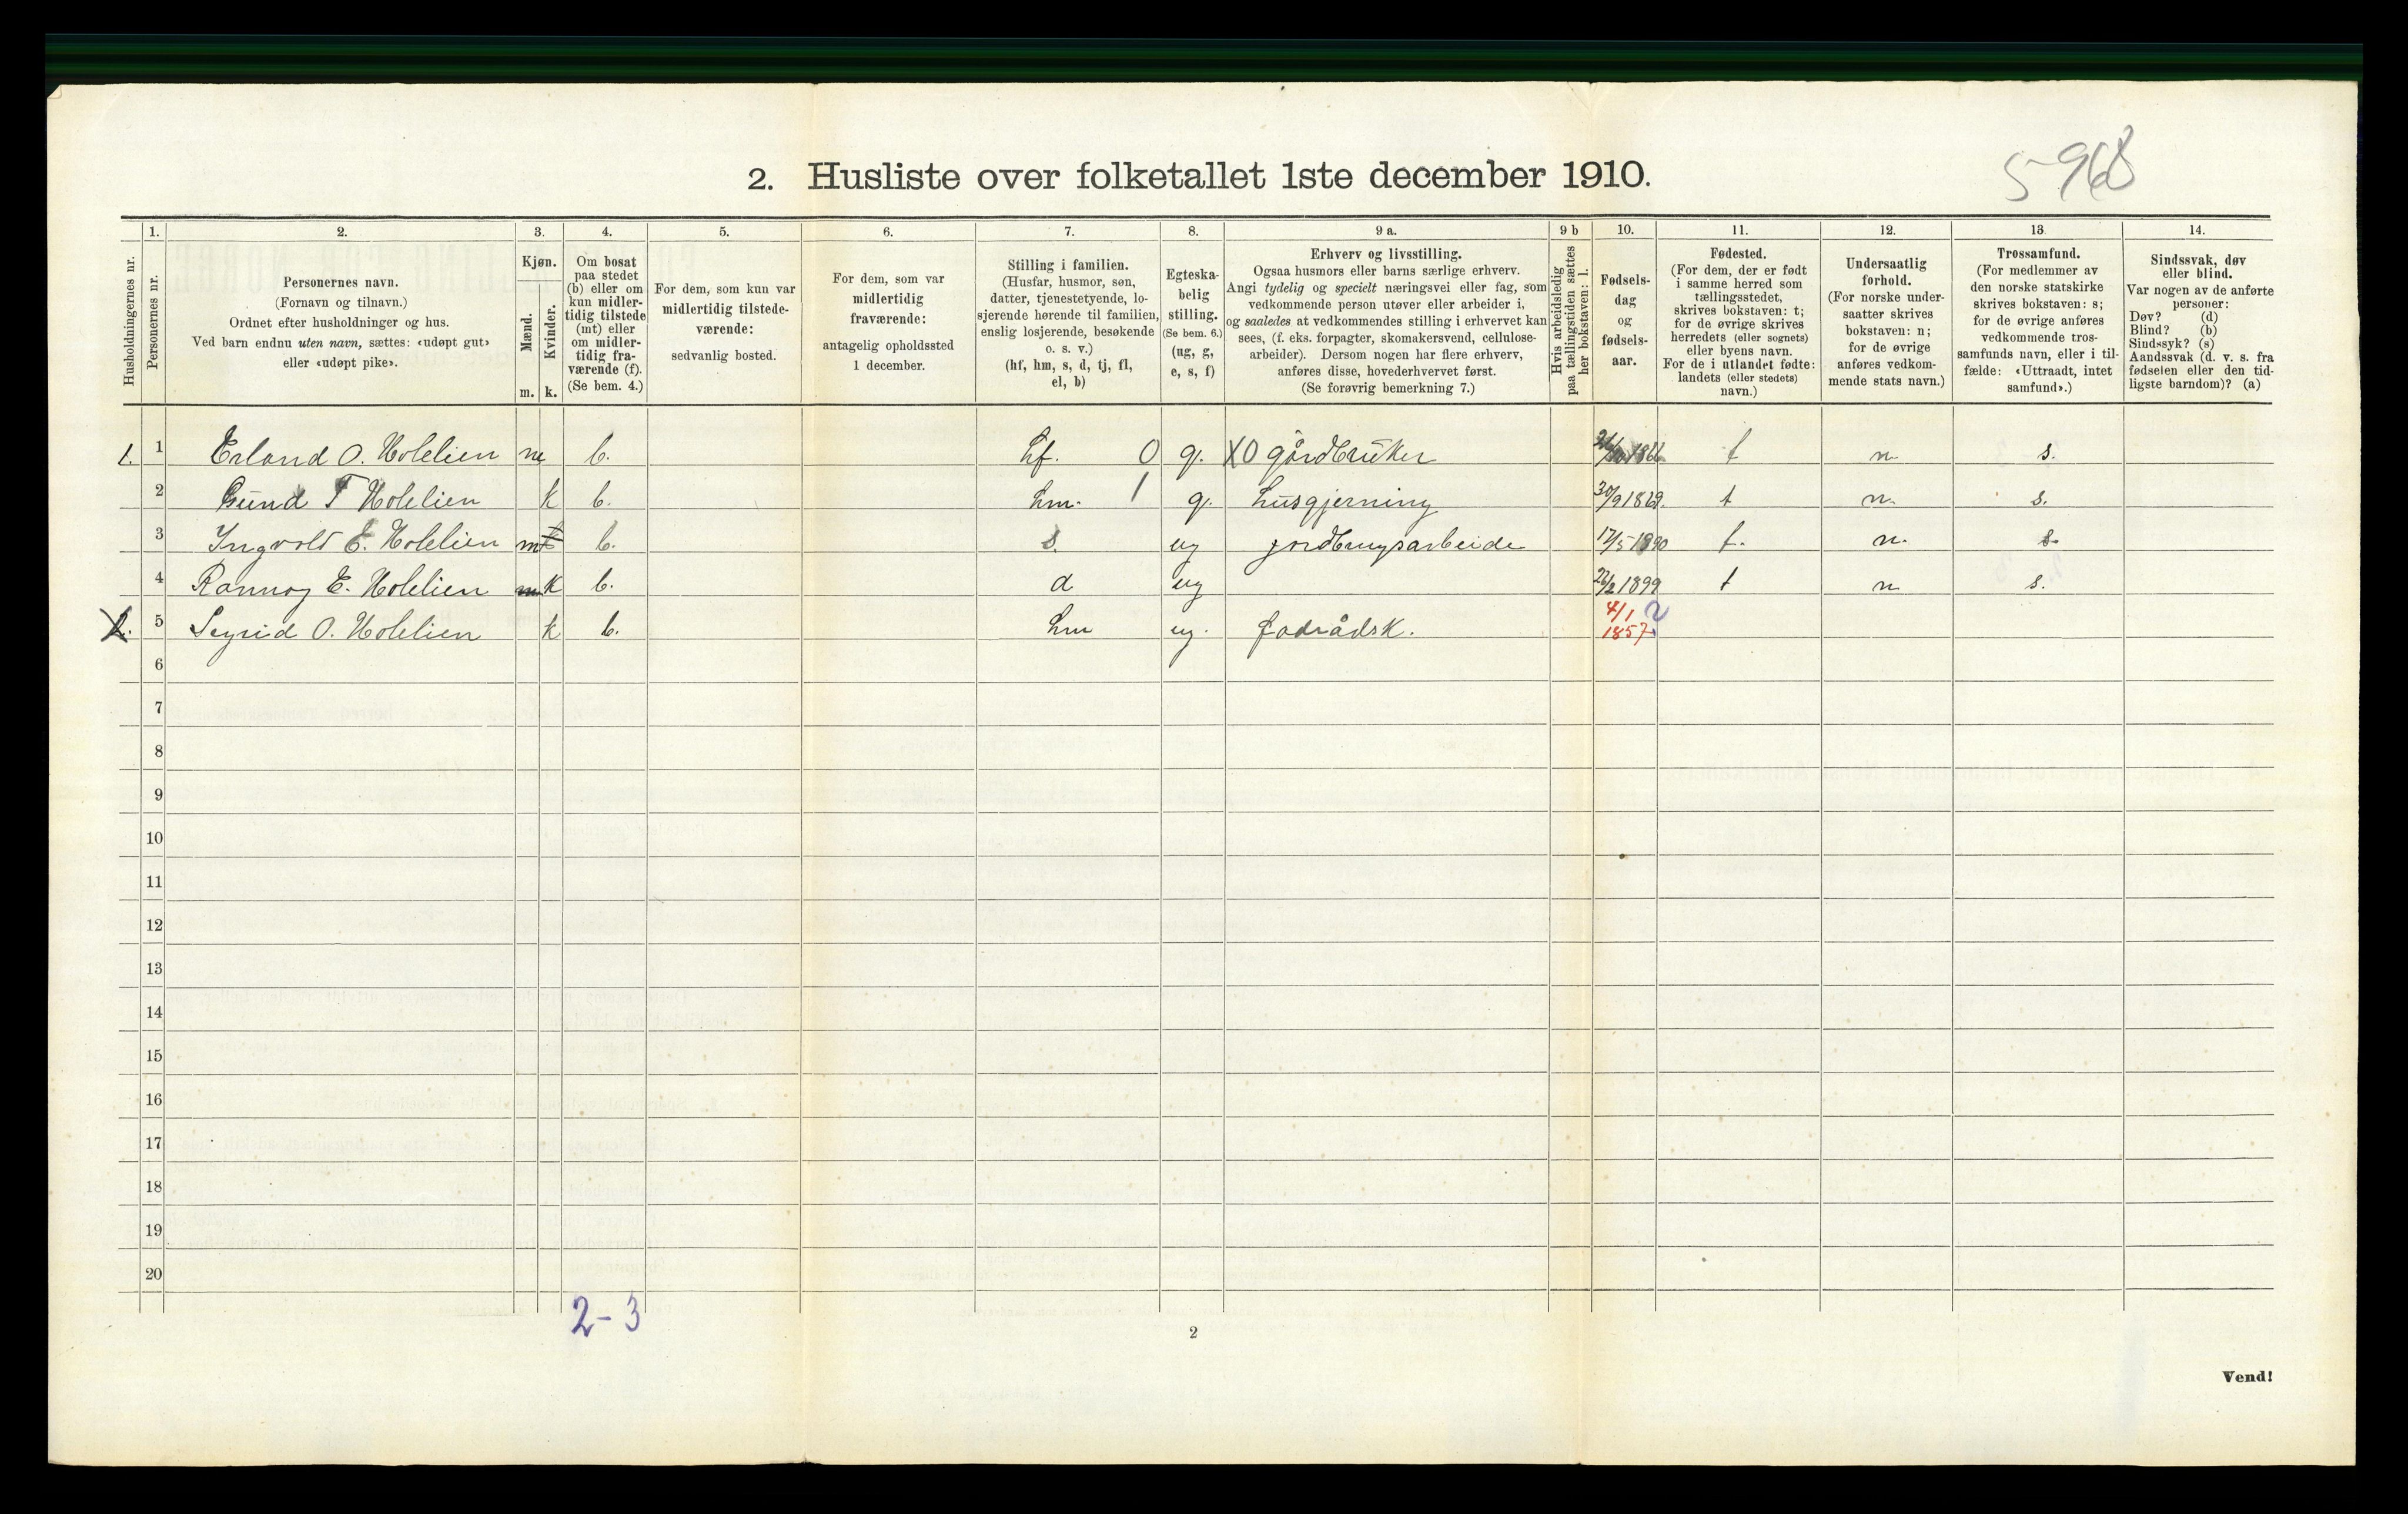 5-968
2. Husliste over folketallet 1ste december 1910.
Husholdningernes nr.
1. Personernes nr.
2. Personernes navn.
(Fornavn og tilnavn.)
Ordnet efter husholdninger og hus.
Ved barn endnu uten navn, sættes: «udøpt gut»
eller «udøpt pike».
3. Kjøn.
Mænd. m.
Kvinder. k.
4. Om bosat
paa stedet
(b) eller om
kun midler-
tidig tilstede
(mt) eller
om midler-
tidig fra-
værende (f).
(Se bem. 4.)
5. For dem, som kun var
midlertidig tilstede-
værende:
sedvanlig bosted.
6. For dem, som var
midlertidig
fraværende:
antagelig opholdssted
1 december.
7. Stilling i familien.
(Husfar, husmor, søn,
datter, tjenestetyende, lo-
sjerende hørende til familien,
enslig losjerende, besøkende
o. s. v.)
(hf, hm, s, d, tj, fl,
el, b)
8. Egteska-
belig
stilling.
(Se bem. 6.)
(ug, g,
e, s, f)
9 a. Erhverv og livsstilling.
Ogsaa husmors eller barns særlige erhverv.
Angi tydelig og specielt næringsvei eller fag, som
vedkommende person utøver eller arbeider i,
og saaledes at vedkommendes stilling i erhvervet kan
sees, (f. eks. forpagter, skomakersvend, cellulose-
arbeider). Dersom nogen har flere erhverv,
anføres disse, hovederhvervet først.
(Se forøvrig bemerkning 7.)
9 b Hvis arbeidsledig
paa tællingstiden sættes
her bokstaven: l.
10. Fødsels-
dag
og
fødsels-
aar.
11. Fødested.
(For dem, der er født
i samme herred som
tællingsstedet,
skrives bokstaven: t;
for de øvrige skrives
herredets (eller sognets)
eller byens navn.
For de i utlandet fødte:
landets (eller stedets)
navn.)
12. Undersaatlig
forhold.
(For norske under-
saatter skrives
bokstaven: n;
for de øvrige
anføres vedkom-
mende stats navn.)
13. Trossamfund.
(For medlemmer av
den norske statskirke
skrives bokstaven: s;
for de øvrige anføres
vedkommende tros-
samfunds navn, eller i til-
fælde: «Uttraadt, intet
samfund».)
14. Sindssvak, døv
eller blind.
Var nogen av de anførte
personer:
Døv? (d)
Blind? (b)
Sindssyk? (s)
Aandssvak (d. v. s. fra
fødselen eller den tid-
ligste barndom)? (a)
1. 1 Erland O. Holelien m b. hf. 0 g. X0 gårdbruker t n s.
2 T Holelien k b. hm. 1 g. husgjerning 30/9 1869. t n. s.
3 Ingvold E. Holelien m k b. s. ug jordbrugsarbeide 17/5 1890 t. n. s.
4 E. Holelien m k b. d ug 22/2 1899 t n s.
2. 5 O. Holelien k b. hm ug. 4/1 1857. 2
6
7
8
9
10
11
12
13
14
15
16
17
18
19
20
2-3
2
Vend!